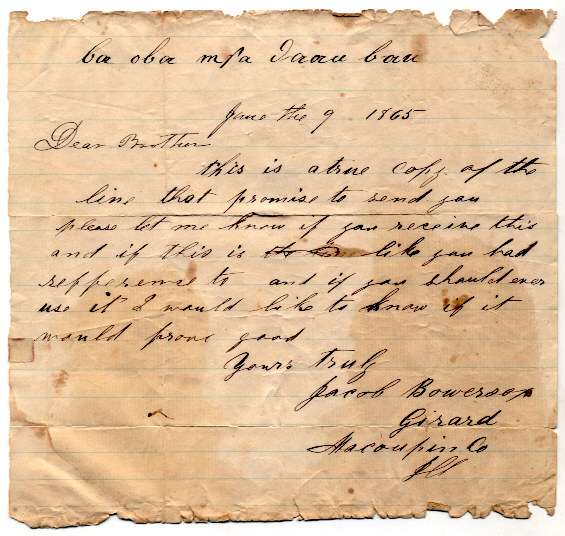 June the 9 1865
Dear Brother
this is a true copy of the
line that promise to send you
please let me know if you receive this
and if this is like you had
refferense to and if you should ever
use it I would like to know if it
would prove good
Yours truly
Jacob Bowersox
Girard
Macoupin Co
Ill